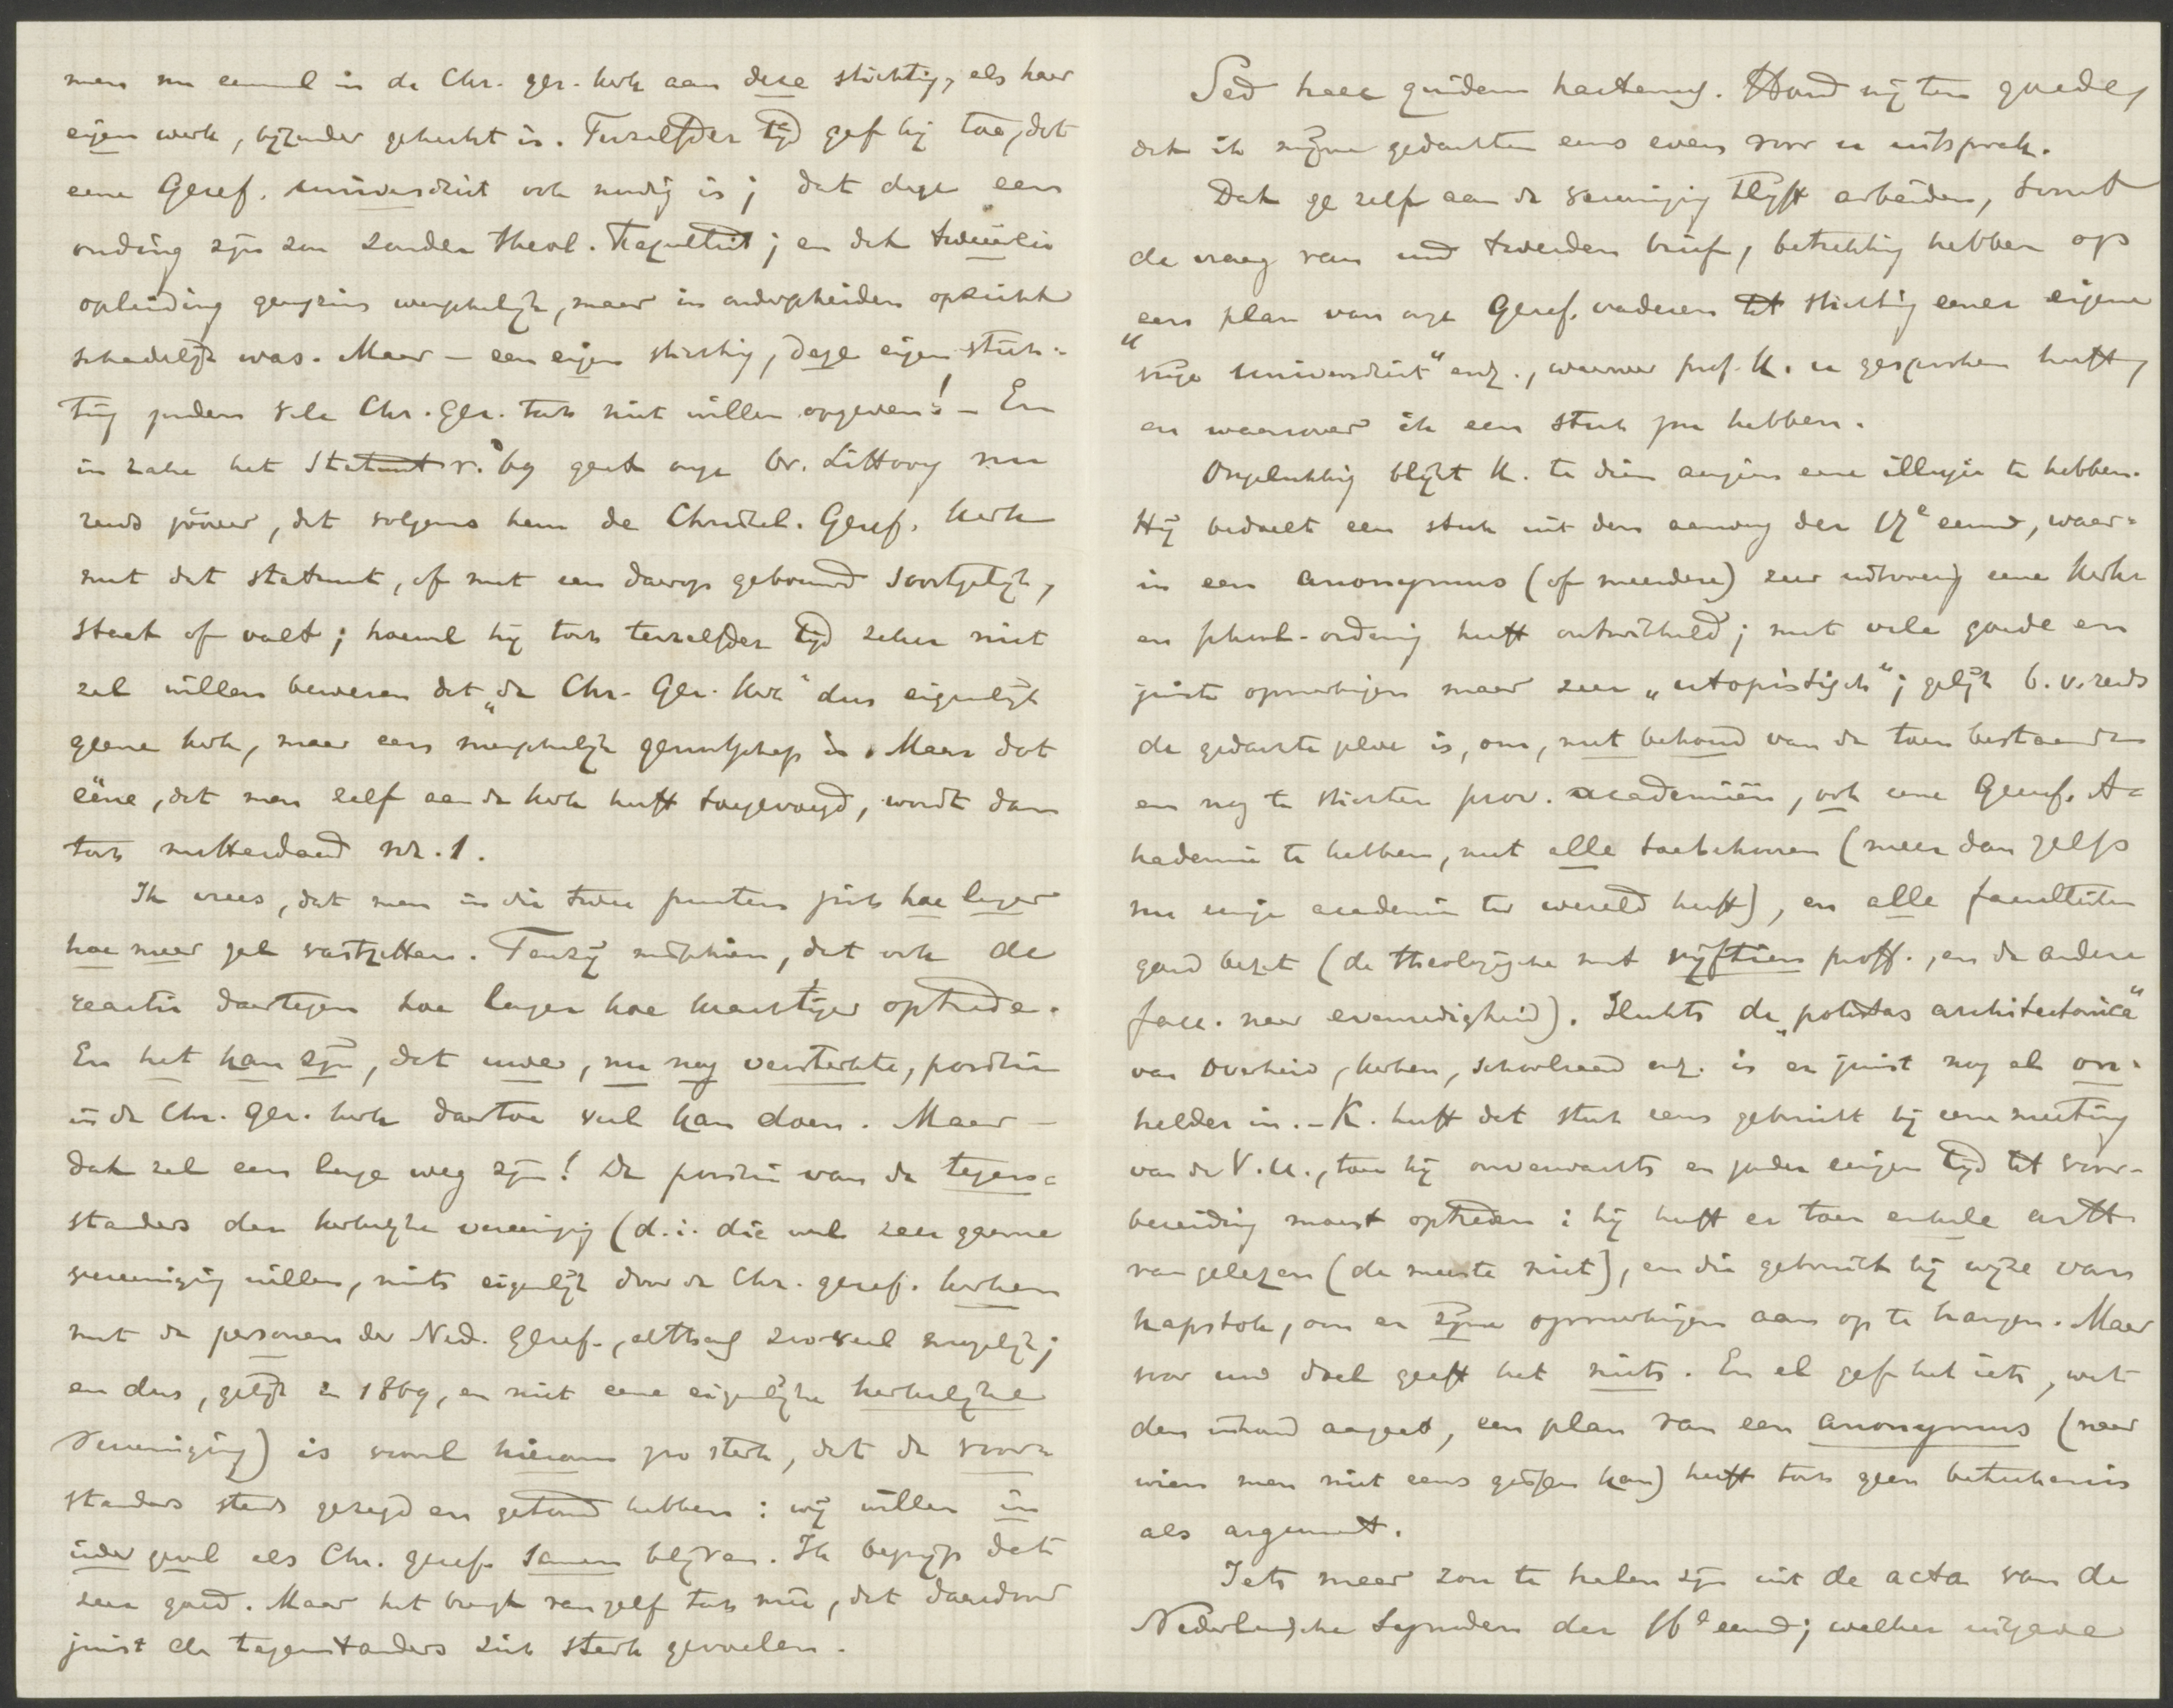 men nu eenmaal in de Chr. ger. kerk aan deze stichting, als haar
eigen werk, bijzonder gehecht is. Terzelfder tijd gaf hij toe, dat
eene Geref. universiteit ook noodig is; dat deze een
onding zijn zou zonder theol. Faculteit; en dat tweeërlei
opleiding geenszins wenschelijk, maar in onderscheiden opzicht
schadelijk was. Maar – een eigen stichting, deze eigen stich-
ting zouden vele Chr. Ger. toch niet willen opgeven! – En
in zake het Statuut v. '69 gaat onze br. Littooy nu
reeds zoover, dat volgens hem de Christel. Geref. Kerk
met dat statuut, of met een daarop gebouwd soortgelijk,
staat of valt; hoewel hij toch terzelfder tijd zeker niet
zal willen beweren dat „de Chr. Ger. Kerk" dus eigenlijk
geene kerk, maar een menschelijk genootschap is. Maar dat
ééne, dat men zelf aan de kerk heeft toegevoegd, wordt dan
toch metterdaad nr. 1.
Ik vrees, dat men in die twee punten zich hoe langer
hoe meer zal vastzetten. Tenzij misschien, dat ook de
reactie daartegen hoe langer hoe krachtiger optrede.
En het kan zijn, dat uwe, nu nog versterkte, positie
in de Chr. Ger. kerk daartoe veel kan doen. Maar –
dat zal een lange weg zijn! De positie van de tegen-
standers der kerkelijke vereeniging (d. i. die wel zeer gaarne
vereeniging willen, mits eigenlijk door de Chr. geref. kerken
met de personen der Ned. Geref., althans zooveel mogelijk;
en dus, gelijk in 1869, en niet eene eigenlijke kerkelijke
Vereeniging) is vooral hierom zoo sterk, dat de voor-
standers steeds gezegd en getoond hebben: wij willen in
ieder geval als Chr. geref. samen blijven. Ik begrijp dat
zeer goed. Maar het brengt van zelf toch mee, dat daardoor
juist de tegenstanders zich sterk gevoelen.
Sed haec quidem hactenus. Houd mij ten goede,
dat ik mijne gedachten eens even voor u uitsprak.
Dat ge zelf aan de vereeniging blijft arbeiden, toont
de vraag van uw tweeden brief, betrekking hebbend op
een plan van onze Geref. vaderen tot stichting eener eigene
„vrije universiteit" enz., waarover prof. K. u gesproken heeft,
en waarover ik een stuk zou hebben.
Ongelukkig blijkt K. te dien aanzien eene illusie te hebben.
Hij bedoelt een stuk uit den aanvang der 17e eeuw, waar-
in een anonymus (of meerdere) zeer uitvoerig eene kerk-
en school-ordening heeft ontwikkeld; met vele goede en
juiste opmerkingen maar zeer „utopistisch"; gelijk b.v. reeds
de gedachte zelve is, om, met behoud van de toen bestaande
en nog te stichten prov. academiën, ook eene Geref. A-
kademie te hebben, met alle toebehooren (meer dan zelfs
nu eenige academie ter wereld heeft), en alle faculteiten
goed bezet (de theologische met vijftien proff., en de andere
facc. naar evenredigheid). Slechts de „potestas architectonica"
van Overheid, kerken, schoolraad enz. is er juist nog al on-
helder in. – K. heeft dat stuk eens gebruikt bij eene meeting
van de V. U., toen hij onverwachts en zonder eenigen tijd tot voor-
bereiding moest optreden: hij heeft er toen enkele artt.
van gelezen (de meeste niet), en die gebruikt bij wijze van
kapstok, om er zijne opmerkingen aan op te hangen. Maar
voor uw doel geeft het niets. En al gaf het iets, wat
den inhoud aangaat, een plan van een anonymus (naar
wien men niet eens gissen kan) heeft toch geen beteekenis
als argument.
Iets meer zou te halen zijn uit de acta van de
Nederlandsche Synoden der 16e eeuw; welker uitgave